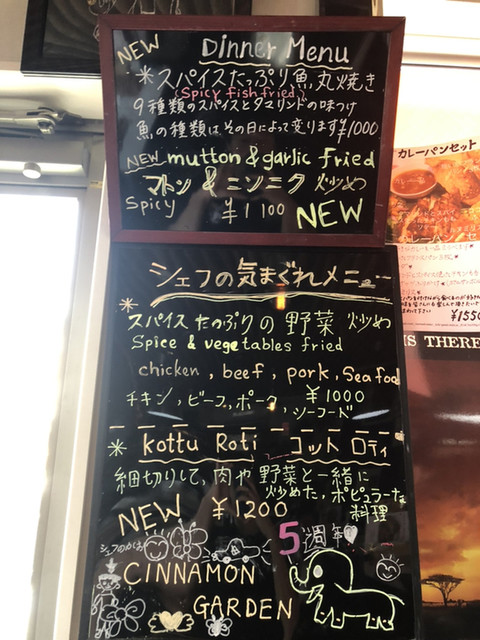 NEW
Dinner Menu
*スパイスたっぷり魚丸焼き
(Spicy fish fried)
9種類のスパイスとタマリンドの味つけ
魚の種類はその日によって変ります¥1000
NEW mutton & garlic fried
マトン & ニンニク 炒め
Spicy ¥1100 NEW
シェフの気まぐれメニュー
*スパイスたっぷりの野菜 炒め
Spice & vegetables fried
chicken, beef, pork, Seafood
チキン, ビーフ, ポーク, シーフード ¥1000
* Kottu Roti コットロティ
細切りして, 肉や野菜と一緒に
炒めた, ポピュラーな
料理
NEW ¥1200
5周年
シェフのかお
CINNAMON
GARDEN
カレーパンセット
¥155
IS THERE